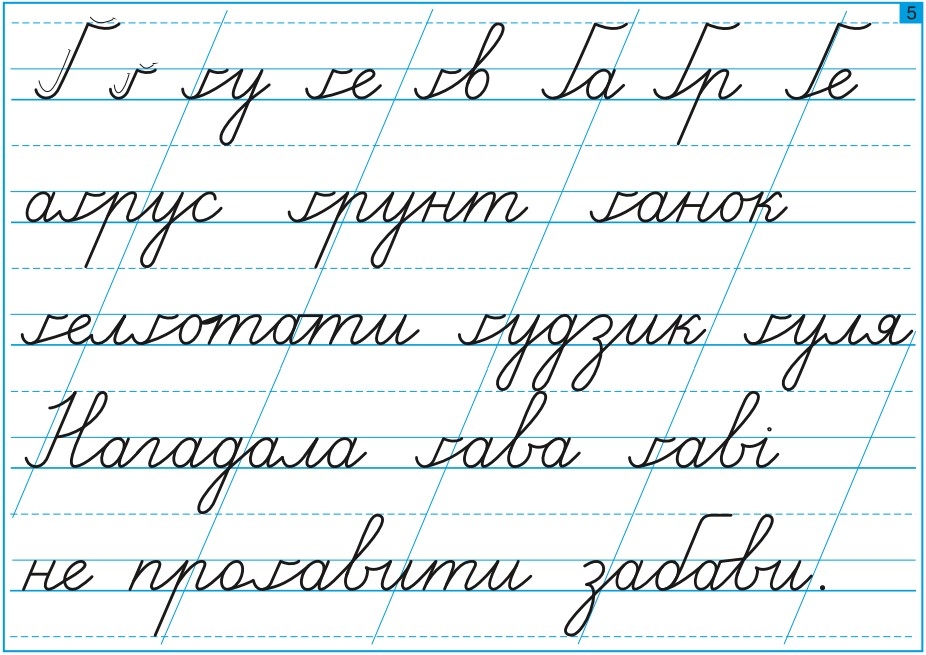 5
Ґ ґ ґу ґе ґв Ґа Ґр Ґе
аґрус ґрунт ґанок
ґелґотати ґудзик ґуля
Нагадала ґава ґаві
не проґавити забави.